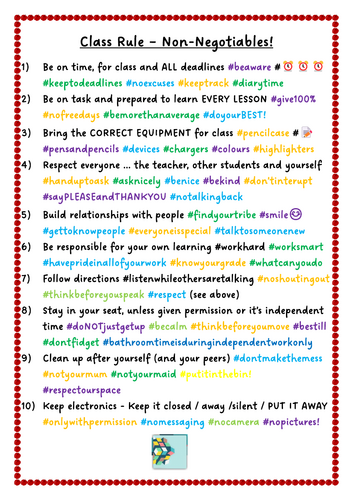 Class Rule – Non-Negotiables!
1) Be on time, for class and ALL deadlines #beaware #
#keeptodeadlines #noexcuses #keeptrack #diarytime
2) Be on task and prepared to learn EVERY LESSON #give100%
#nofreedays #bemorethanaverage #doyourBEST!
3) Bring the CORRECT EQUIPMENT for class #pencilcase #
#pensandpencils #devices #chargers #colours #highlighters
4) Respect everyone ... the teacher, other students and yourself
#handuptoask #asknicely #benice #bekind #don'tinterupt
#sayPLEASEandTHANKYOU #notalkingback
5) Build relationships with people #findyourtribe #smile
#gettoknowpeople #everyoneisspecial #talktosomeonenew
6) Be responsible for your own learning #workhard #worksmart
#haveprideinallofyourwork #knowyourgrade #whatcanyoudo
7) Follow directions #listenwhileothersaretalking #noshoutingout
#thinkbeforeyouspeak #respect (see above)
8) Stay in your seat, unless given permission or it's independent
time #doNOTjustgetup #becalm #thinkbeforeyoumove #bestill
#dontfidget #bathroomtimeisduringindependentworkonly
9) Clean up after yourself (and your peers) #dontmakethemess
#notyourmum #notyourmaid #putitinthebin!
#respectourspace
10) Keep electronics - Keep it closed / away /silent / PUT IT AWAY
#onlywithpermission #nomessaging #nocamera #nopictures!